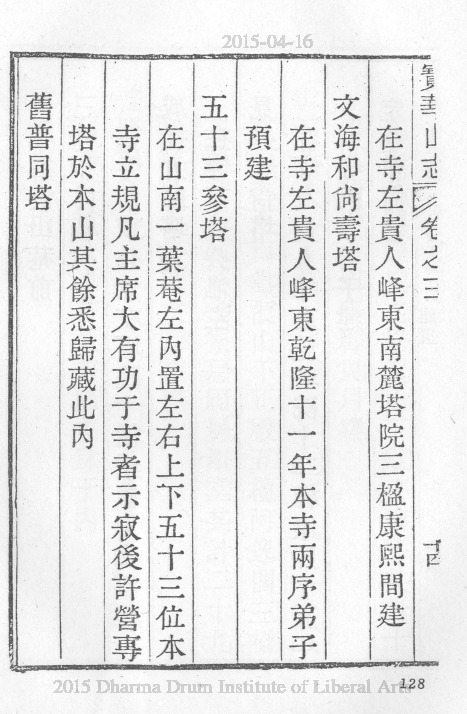 2015-04-16
寶華山志 卷之三 十四
在寺左貴人峰東南麓塔院三楹康熙間建
文海和尚壽塔
在寺左貴人峰東乾隆十一年本寺兩序弟子
預建
五十三參塔
在山南一葉菴左內置左右上下五十三位本
寺立規凡主席大有功于寺者示寂後許營專
塔於本山其餘悉歸藏此內
舊普同塔
128
2015 Dharma Drum Institute of Liberal Arts